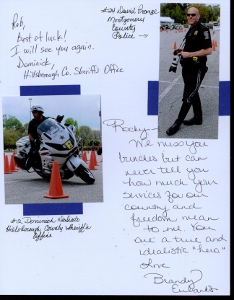 Rob,
Best of luck!
I will see you again.
Dominick,
Hillsborough Co. Sheriff's Office
#24 David
Montgomery
County
Police →
Rocky~
We miss you
but can
never tell you
how much your
services for our
country and
freedom mean
to me. You
are a true and
idealistic "hero"
Love
Brandy
#12 Dominick
Hillsborough County Sheriff's
Office